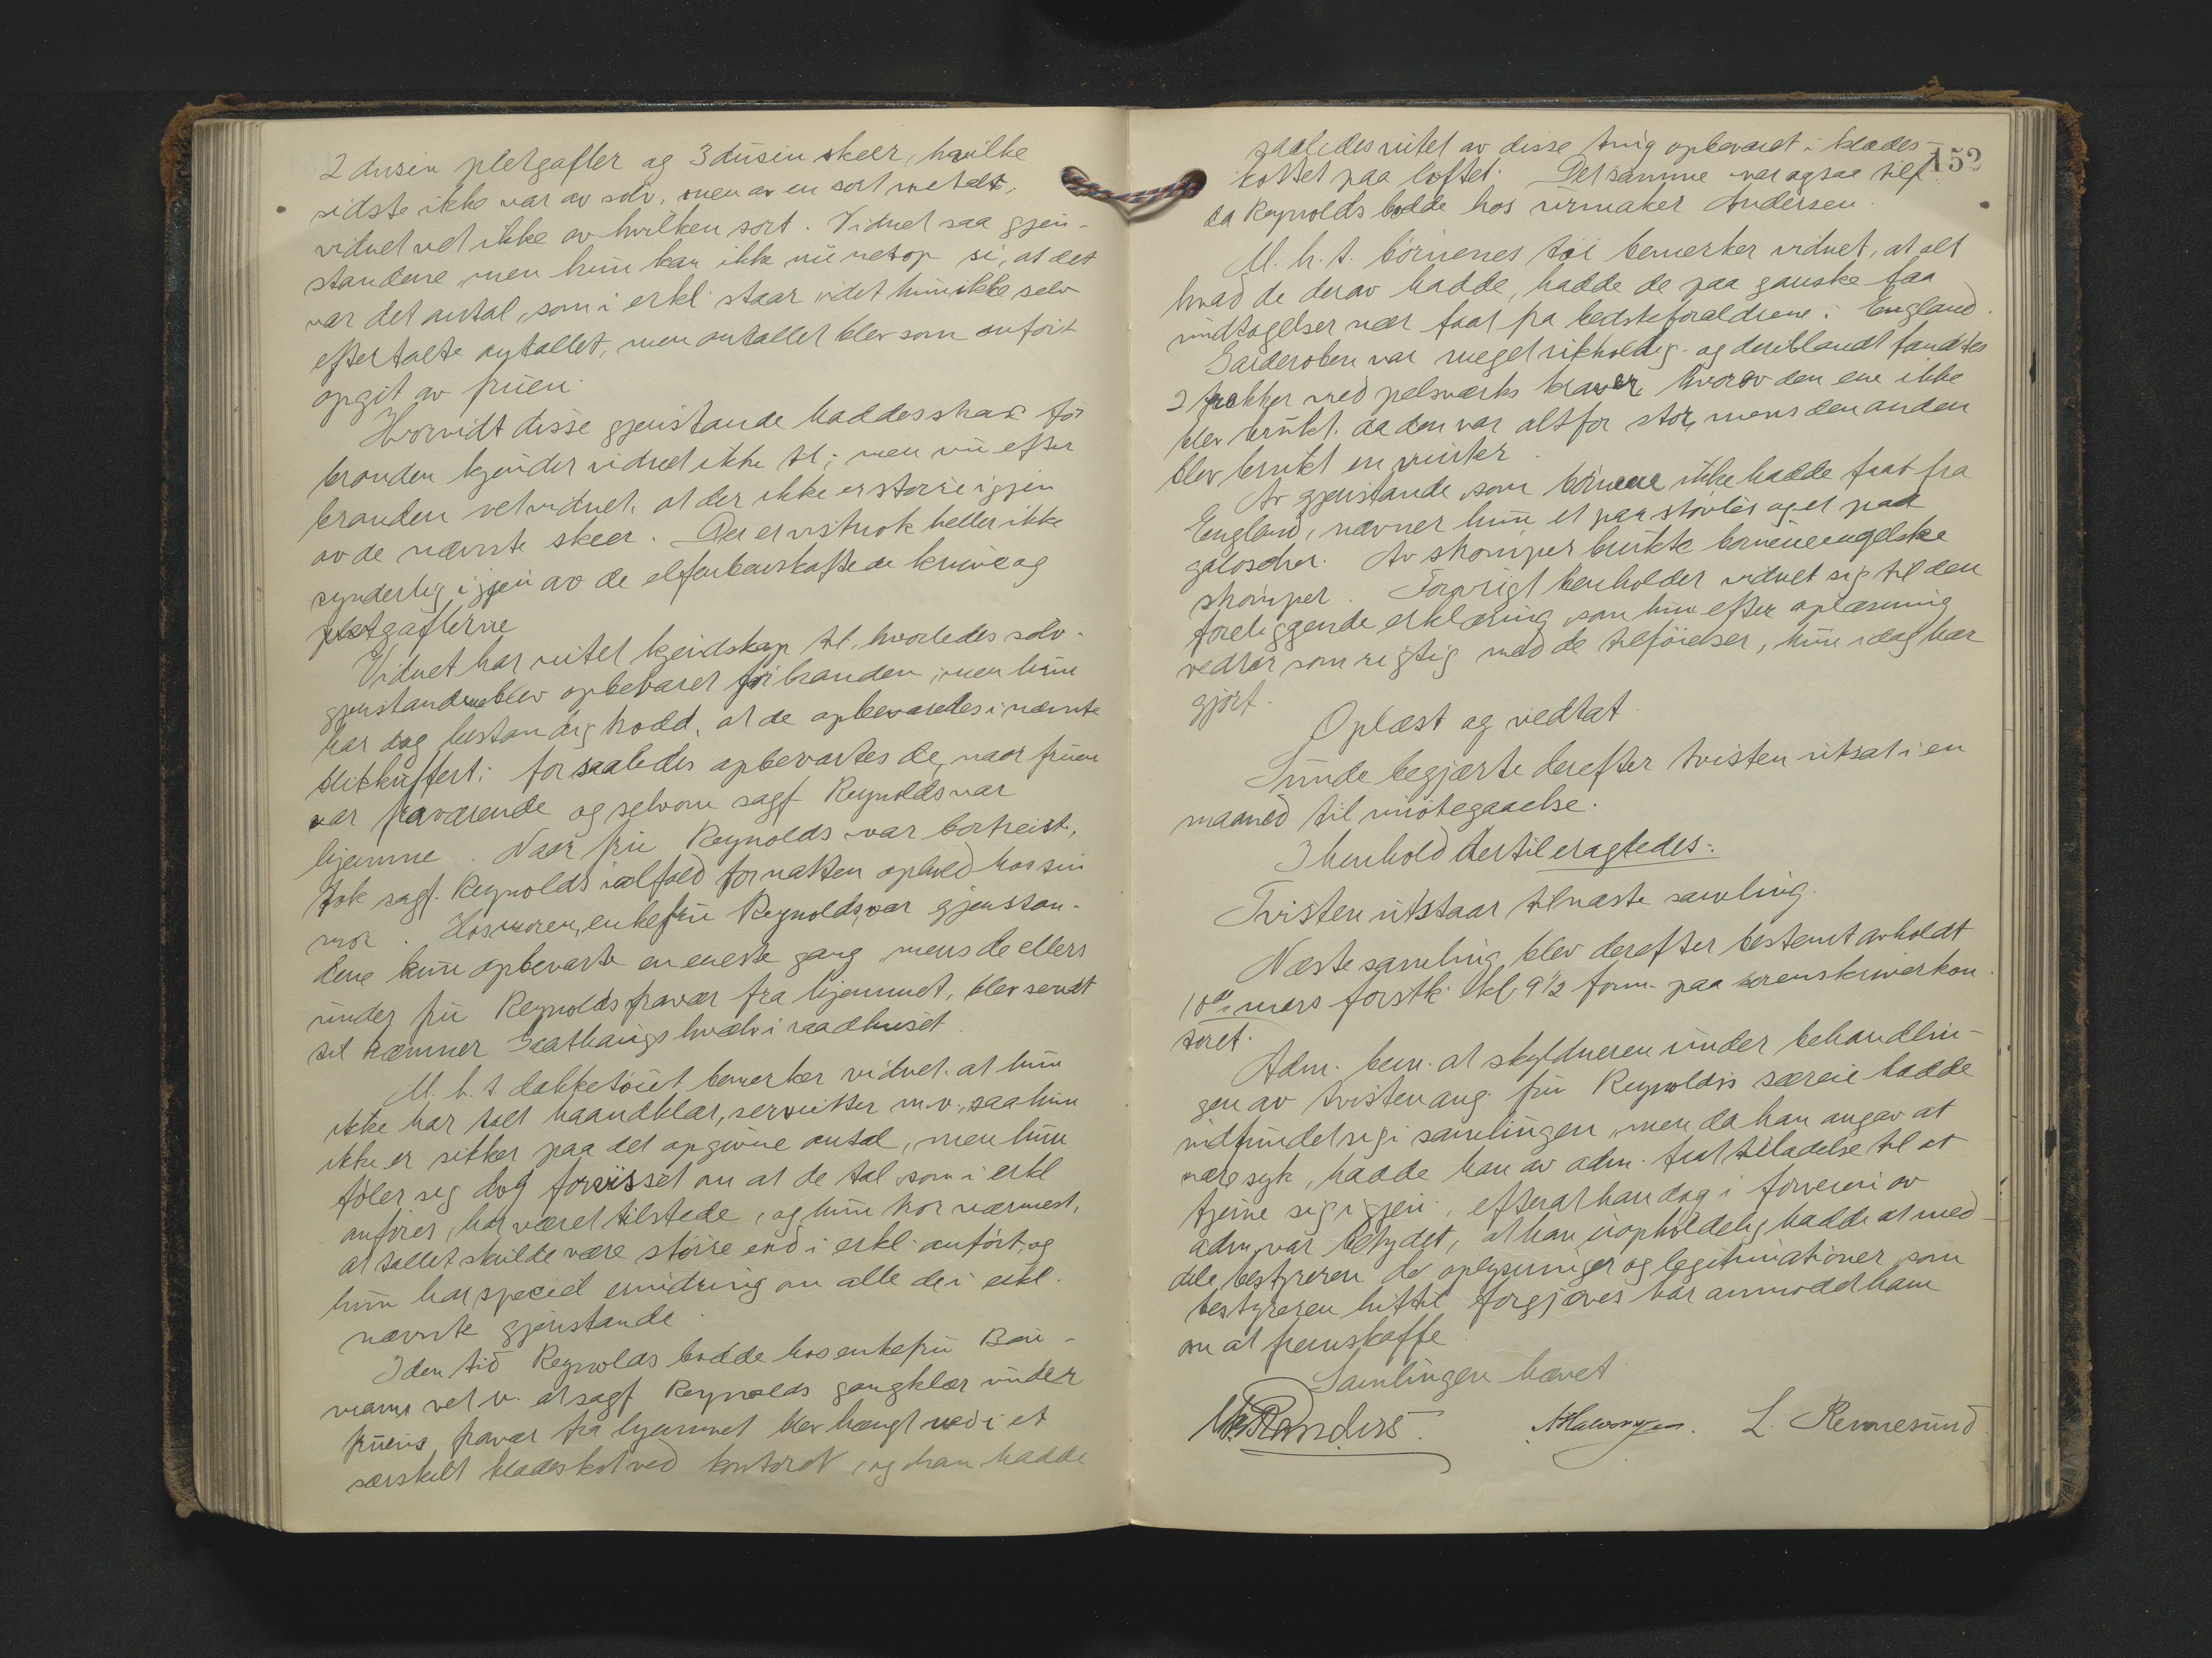 2 dusin pletgafler og 3 dusin skeer, hvilke
sidste ikke var av sølv, men av en sort metal,
vidnet vet ikke av hvilken sort. Vidnet saa gjen-
standene men hun kan ikke nu netop si, at det
var det antal, som i erkl. staar idet hun ikke selv
eftertalte antallet, men antallet blev som anført
opgit av fruen.
Hvorvidt disse gjenstande haddes straks før
branden kjender vidnet ikke til; men nu efter
branden vet vidnet, at der ikke er større igjen
av de nævnte skeer. Der er vistnok heller ikke
synderlig igjen av de elfenbenskaftede knive og
pletgaflerne
Vidnet har intet kjendskap til, hvorledes sølv-
gjenstandene blev opbevaret før branden, men hun
har dog bestandig trodd, at de opbevaredes i nævnte
blikkuffert; for saaledes opbevartes de, naar fruen
var fraværende og selvom sagf. Reynolds var
hjemme. Naar fru Reynolds var bortreist,
tok sagf. Reynolds ialfald for natten ophold hos sin
mor. Hos moren, enkefru Reynolds, var gjenstan-
dene kun opbevarte en eneste gang mens de ellers
under fru Reynolds fravær fra hjemmet, blev sendt
til kæmner Saathaugs hvælv i raadhuset.
M. h. t. dækketøiet bemerker vidnet, at hun
ikke har talt haandklær, servietter m.v., saa hun
ikke er sikker paa det opgivne antal, men hun
føler sig dog forvisset om at de tal som i erkl
anføres, har været tilstede, og hun tror nærmest,
at tallet skulde være større end i erkl. anført, og
hun har speciel erindring om alle de i erkl.
nævnte gjenstande.
I den tid Reynolds bodde hos enkefru Bau-
mann vet v. at sagf. Reynolds gangklær under
fruens fravær fra hjemmet blev hængt ned i et
særskilt klædeskot ved kontoret, og han hadde
saaledes intet av disse ting opbevaret i klædes-
kottet paa loftet. Det samme var ogsaa tilf.
152
da Reynolds bodde hos urmaker Andersen.
M. h. t. børnenes tøi bemerker vidnet, at alt
hvad de derav hadde, hadde de paa ganske faa
undtagelser nær faat fra bedsteforældrene i England.
Garderoben var meget rikholdig og deriblandt fandtes
2 frakker med pelsverks kraver, hvorav den ene ikke
blev brukt, da den var altfor stor, mens den anden
blev brukt en vinter.
Av gjenstande, som børnene ikke hadde faat fra
England, nævner hun et par støvler og et par
galoscher. Av strømper brukte børnene engelske
strømper. Forøvrigt henholder vidnet sig til den
foreliggende erklæring, som hun efter oplæsning
vedtar som rigtig med de tilføielser, hun idag har
gjort.
Oplæst og vedtat.
Sunde begjærte derefter tvisten utsat i en
maaned til imøtegaaelse.
I henhold dertil eragtedes:
Tvisten utstaar til næste samling.
Næste samling blev derefter bestemt avholdt
10de mars førstk. kl. 9½ form. paa sorenskriverkon-
toret.
Adm. bem. at skyldneren under behandlin-
gen av tvisten ang. fru Reynolds's særeie hadde
indfundet sig i samlingen, men da han angav at
være syk, hadde han av adm. faat tilladelse til at
fjerne sig igjen, efterat han dog i forveien av
adm. var betydet, at han uopholdelig hadde at med-
dele bestyreren de oplysninger og legitimationer som
bestyreren hittil forgjæves har anmodet ham
om at fremskaffe.
Samlingen hævet.
Randers. A Halvorsen. L. Rennesund